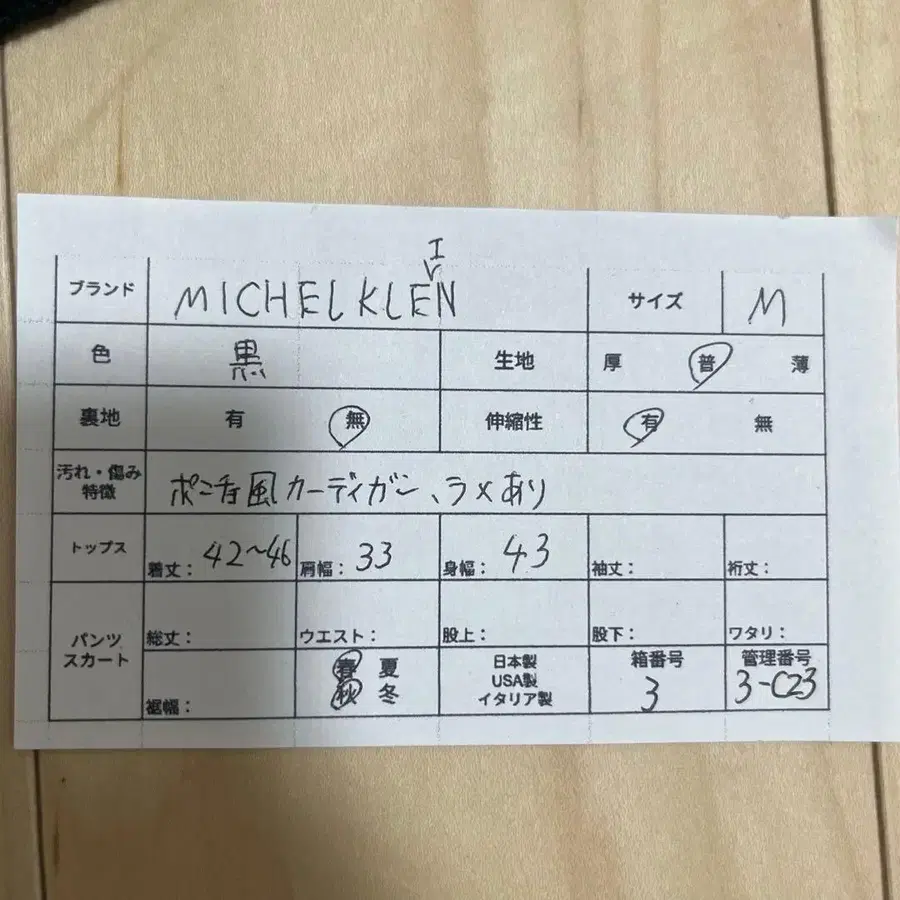 ブランド MICHEL KLEIN サイズ M
色 黒 生地 厚 普 薄
裏地 有 無 伸縮性 有 無
汚れ・傷み
特徴 ポンチョ風カーディガン、ラメあり
トップス 着丈: 42~46 肩幅: 33 身幅: 43 袖丈: 裄丈:
パンツ
スカート
総丈: ウエスト: 股上: 股下: ワタリ:
裾幅: 春 夏
秋 冬
日本製
USA製
イタリア製
箱番号
3
管理番号
3-C23